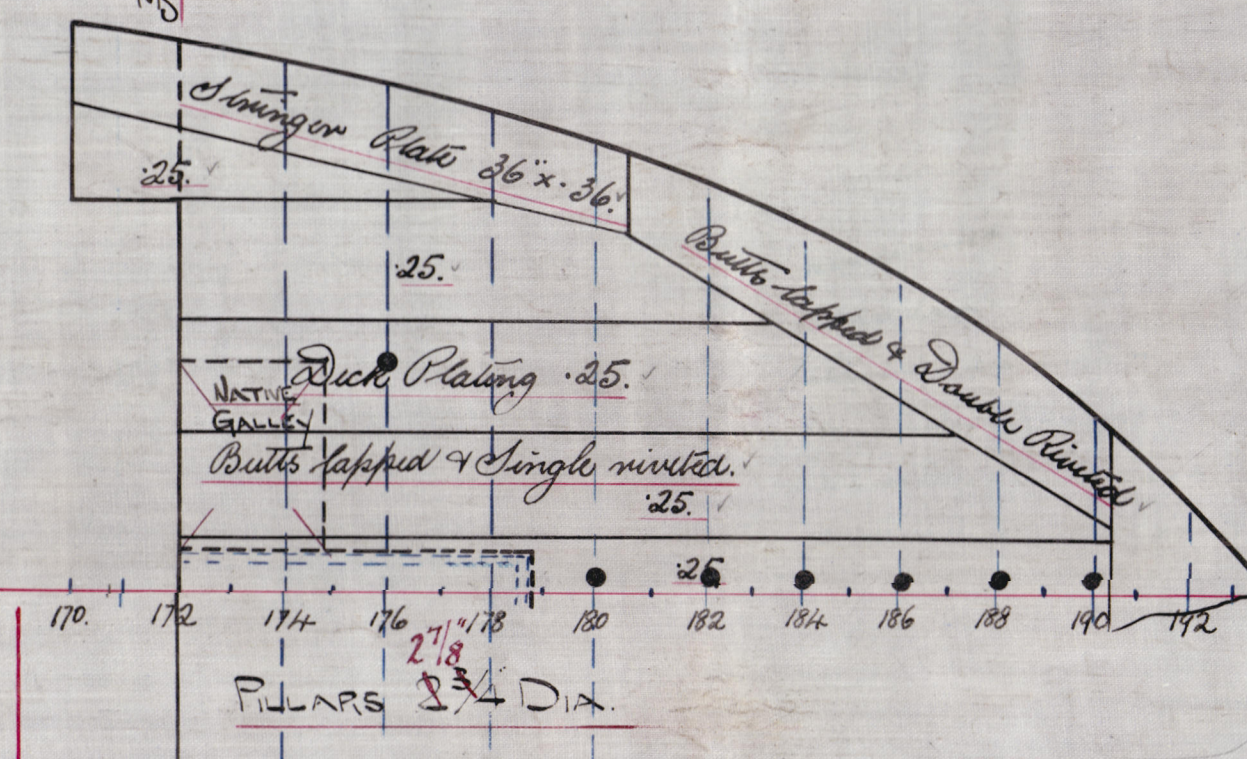 MS
Stringer Plate 36"x.36.
.25.
.25.
Butts lapped & Double Riveted
Deck Plating .25.
NATIVE
GALLEY
Butts lapped & Single riveted.
.25.
.25
170. 172 174 176 178 180 182 184 186 188 190 192
2 7/8"
PILLARS 2 3/4 DIA.